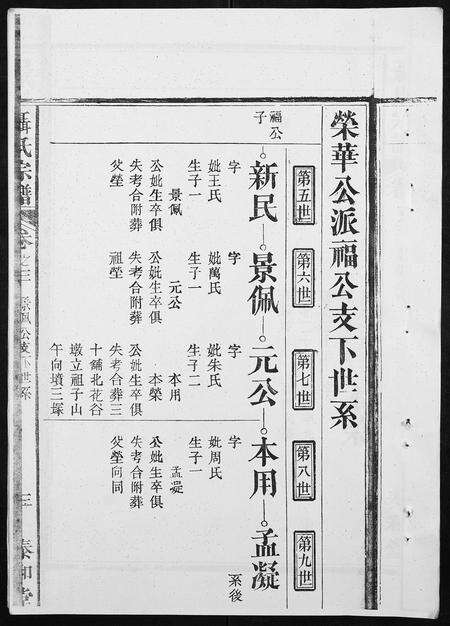 榮華公派福公支下世系
第五世
第六世
第七世
第八世
第九世
福公
子
新民
景佩
元公
本用
孟凝
系後
字
妣王氏
生子一
景佩
公妣生卒俱
失考合附葬
父塋
字
妣萬氏
生子一
元公
公妣生卒俱
失考合附葬
祖塋
字
妣朱氏
生子二
本用
本榮
公妣生卒俱
失考合葬三
十鋪北花谷
墩立祖子山
午向墳三塚
字
妣周氏
生子一
孟凝
公妣生卒俱
失考合附葬
父塋向同
氏宗譜
卷之三
景佩公支下世系
三